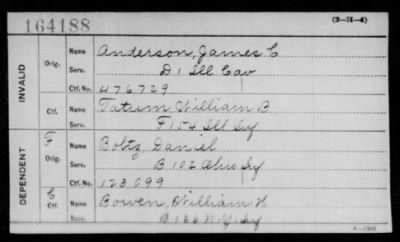 164188 (3-H-4)
INVALID
Orig. Name Anderson, James C
Serv. D 1 Ill Cav
Ctf. No. 476729
Ctf. Name Tatum William B
Serv. F 154 Ill Inf
DEPENDENT
Orig. Name Boltz Daniel
Serv. B 102 Ohio Inf
Ctf. No. 123099
Ctf. Name Bowen, William H
Serv. B 166 N.Y. Inf